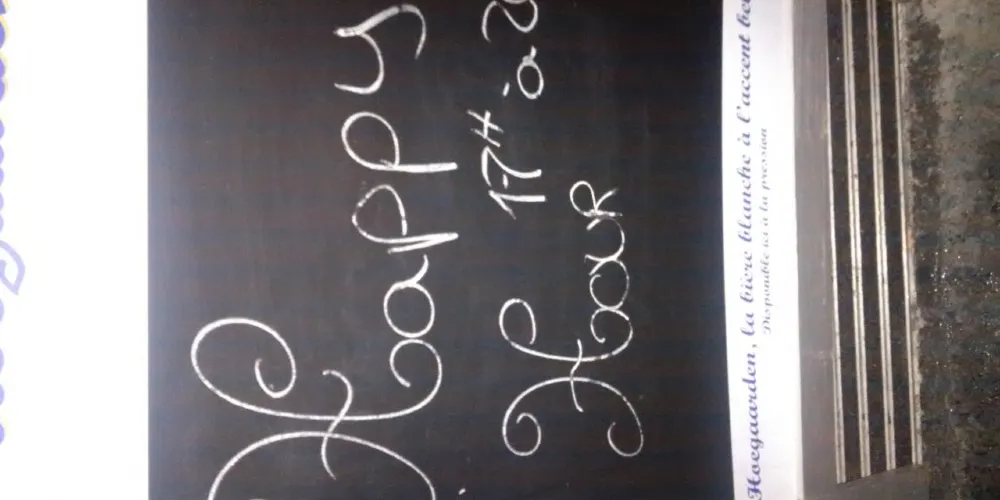 Happy
17H à
HouR
Hoegaarden, la bière blanche à l'accent
Disponible ici à la pression